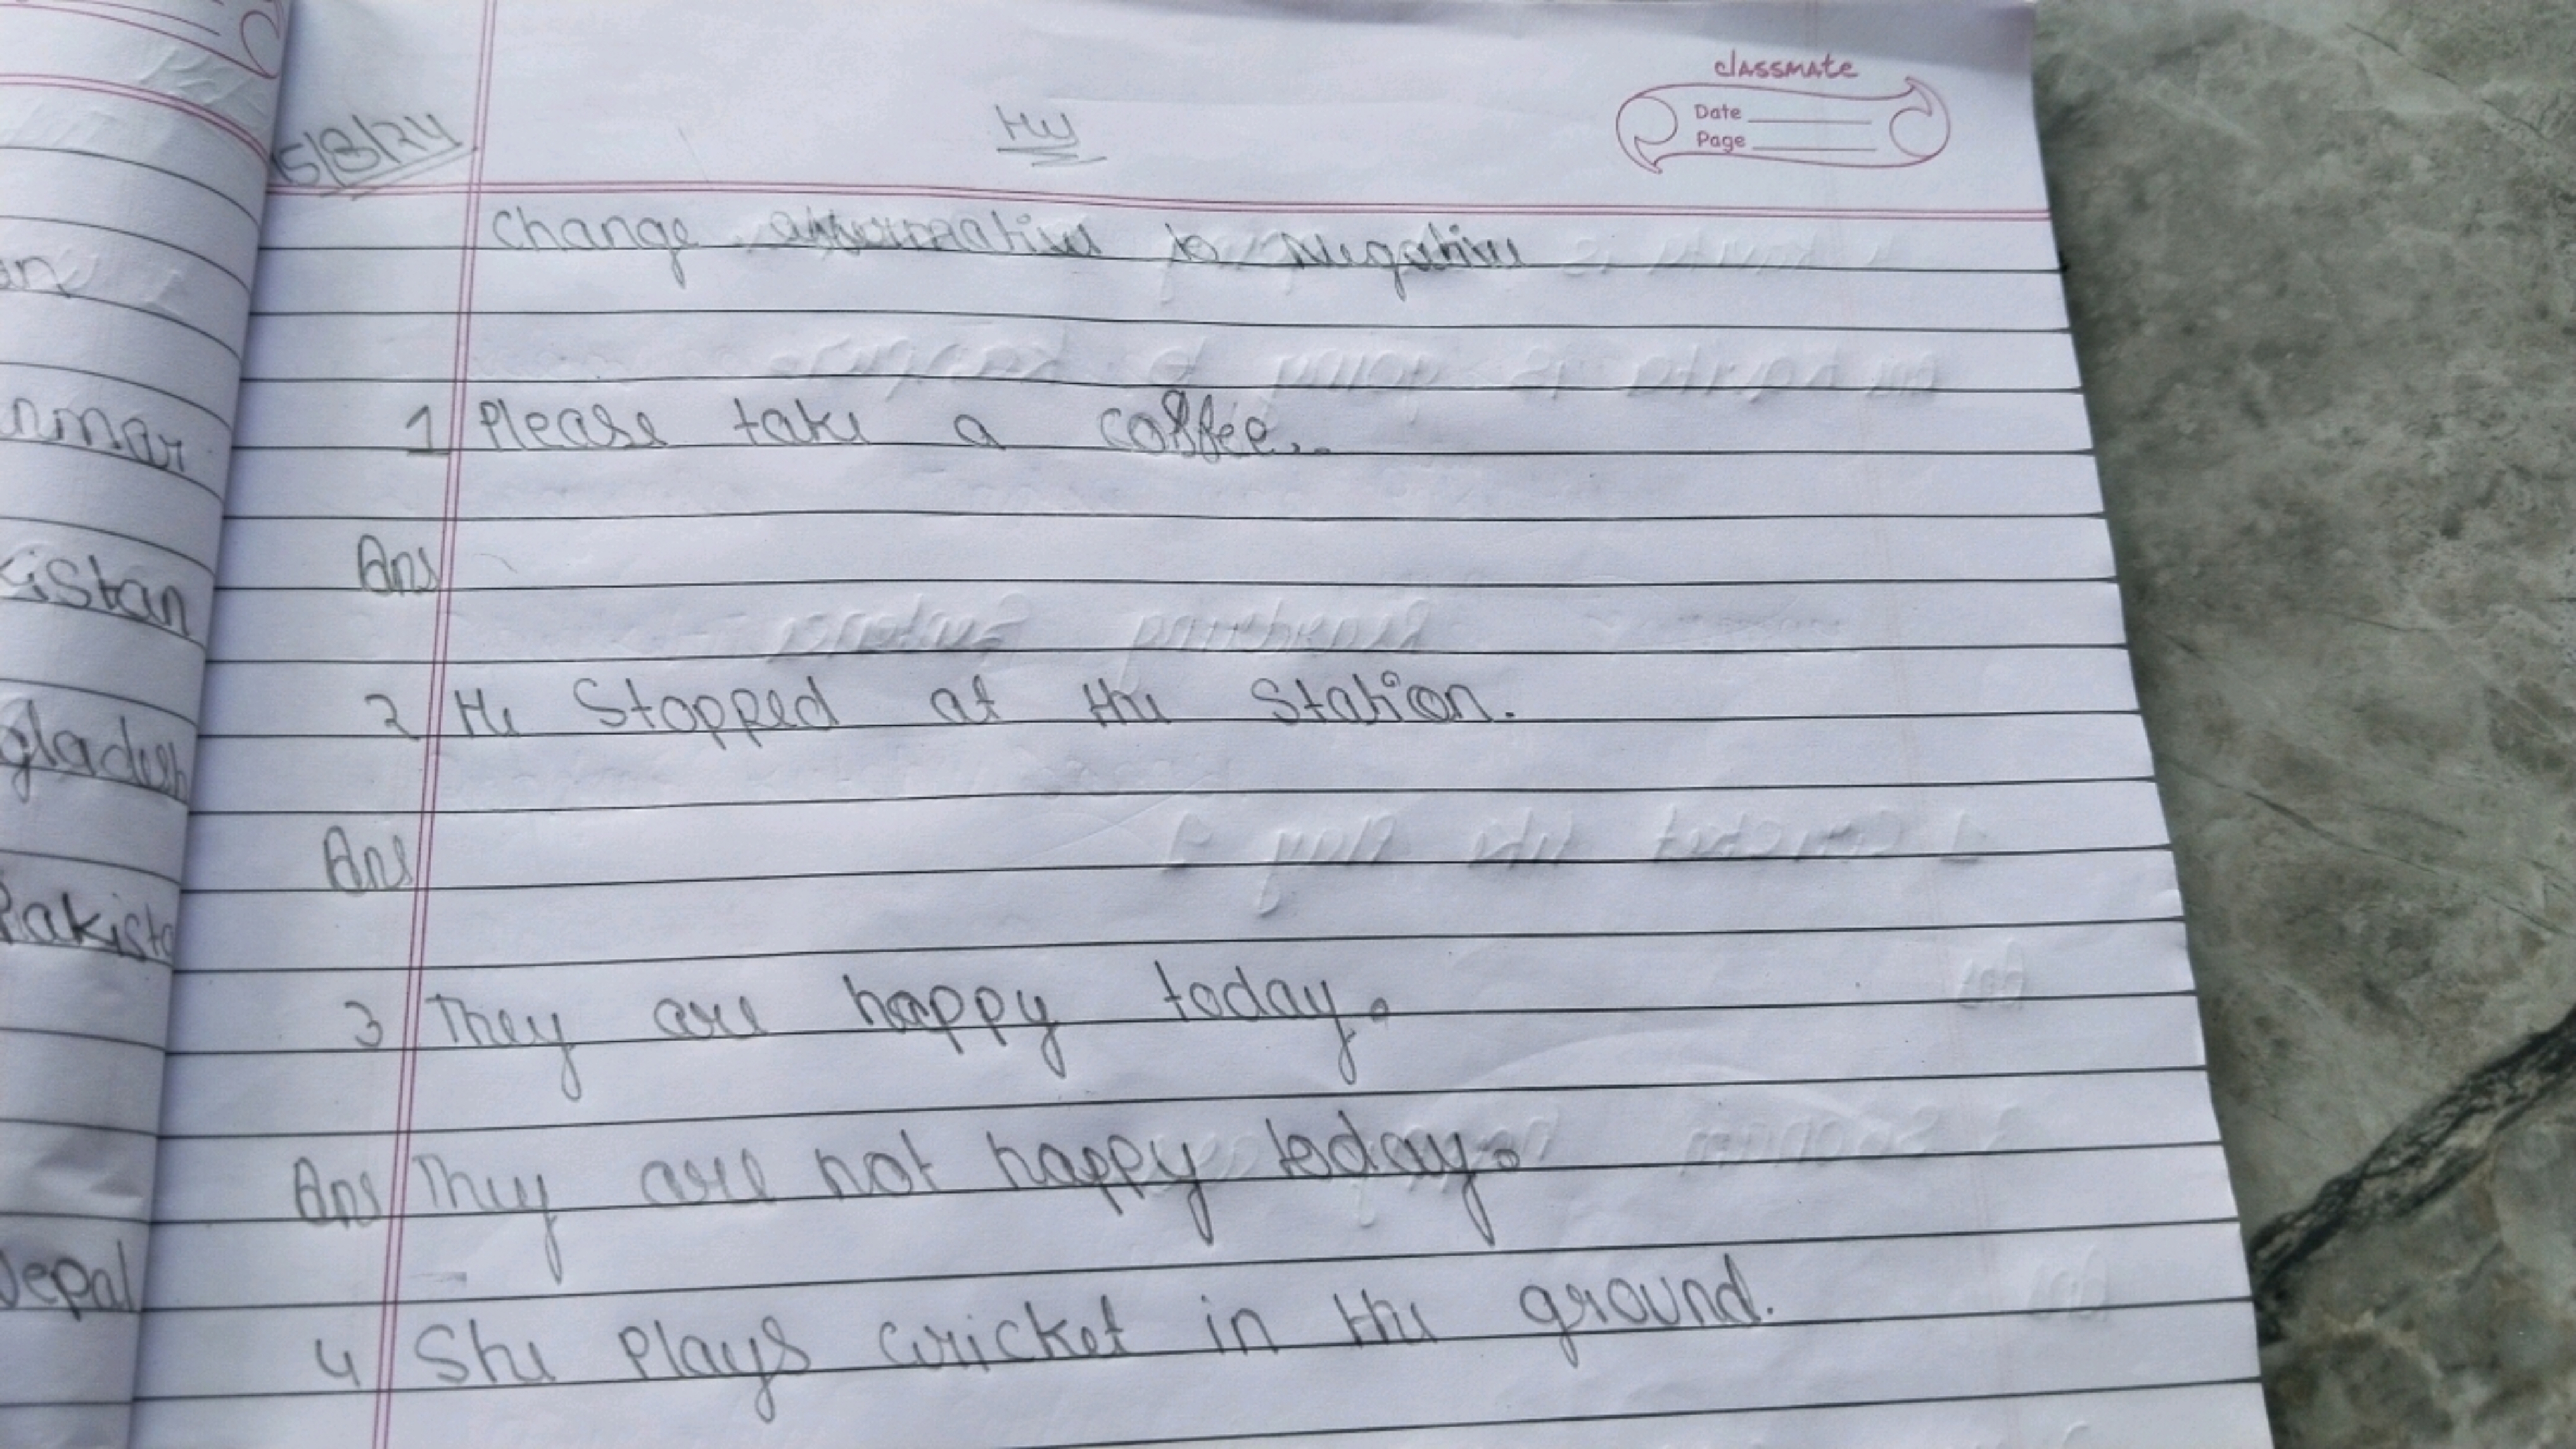 classmate
Date
Page
5/8/24
HW
Change affermative to Negative
1 Please take a coffee..
Ans
2 He Stopped at the Station.
Ans
3 They are happy today.
Ans They are not happy today.
4 She Plays cricket in the ground.
an
nmar
kistan
gladesh
Pakista
Nepal